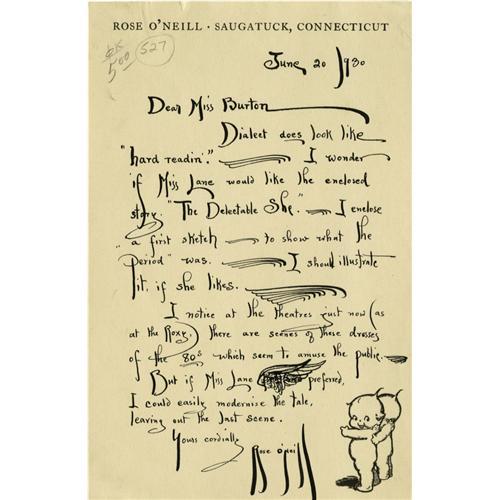 ROSE O'NEILL · SAUGATUCK, CONNECTICUT
5.00
527
June 20 1930
Dear Miss Burton
Dialect does look like
"hard readin'." I wonder
if Miss Lane would like the enclosed
story. "The Delectable She." I enclose
"a first sketch to show what the
Period" was. I should illustrate
it, if she likes.
I notice at the theatres just now (as
at the Roxy) there are scenes of these dresses
of the 80s which seem to amuse the public.
But if Miss Lane preferred,
I could easily modernise the tale,
leaving out the last scene.
Yours cordially
Rose O'Neill